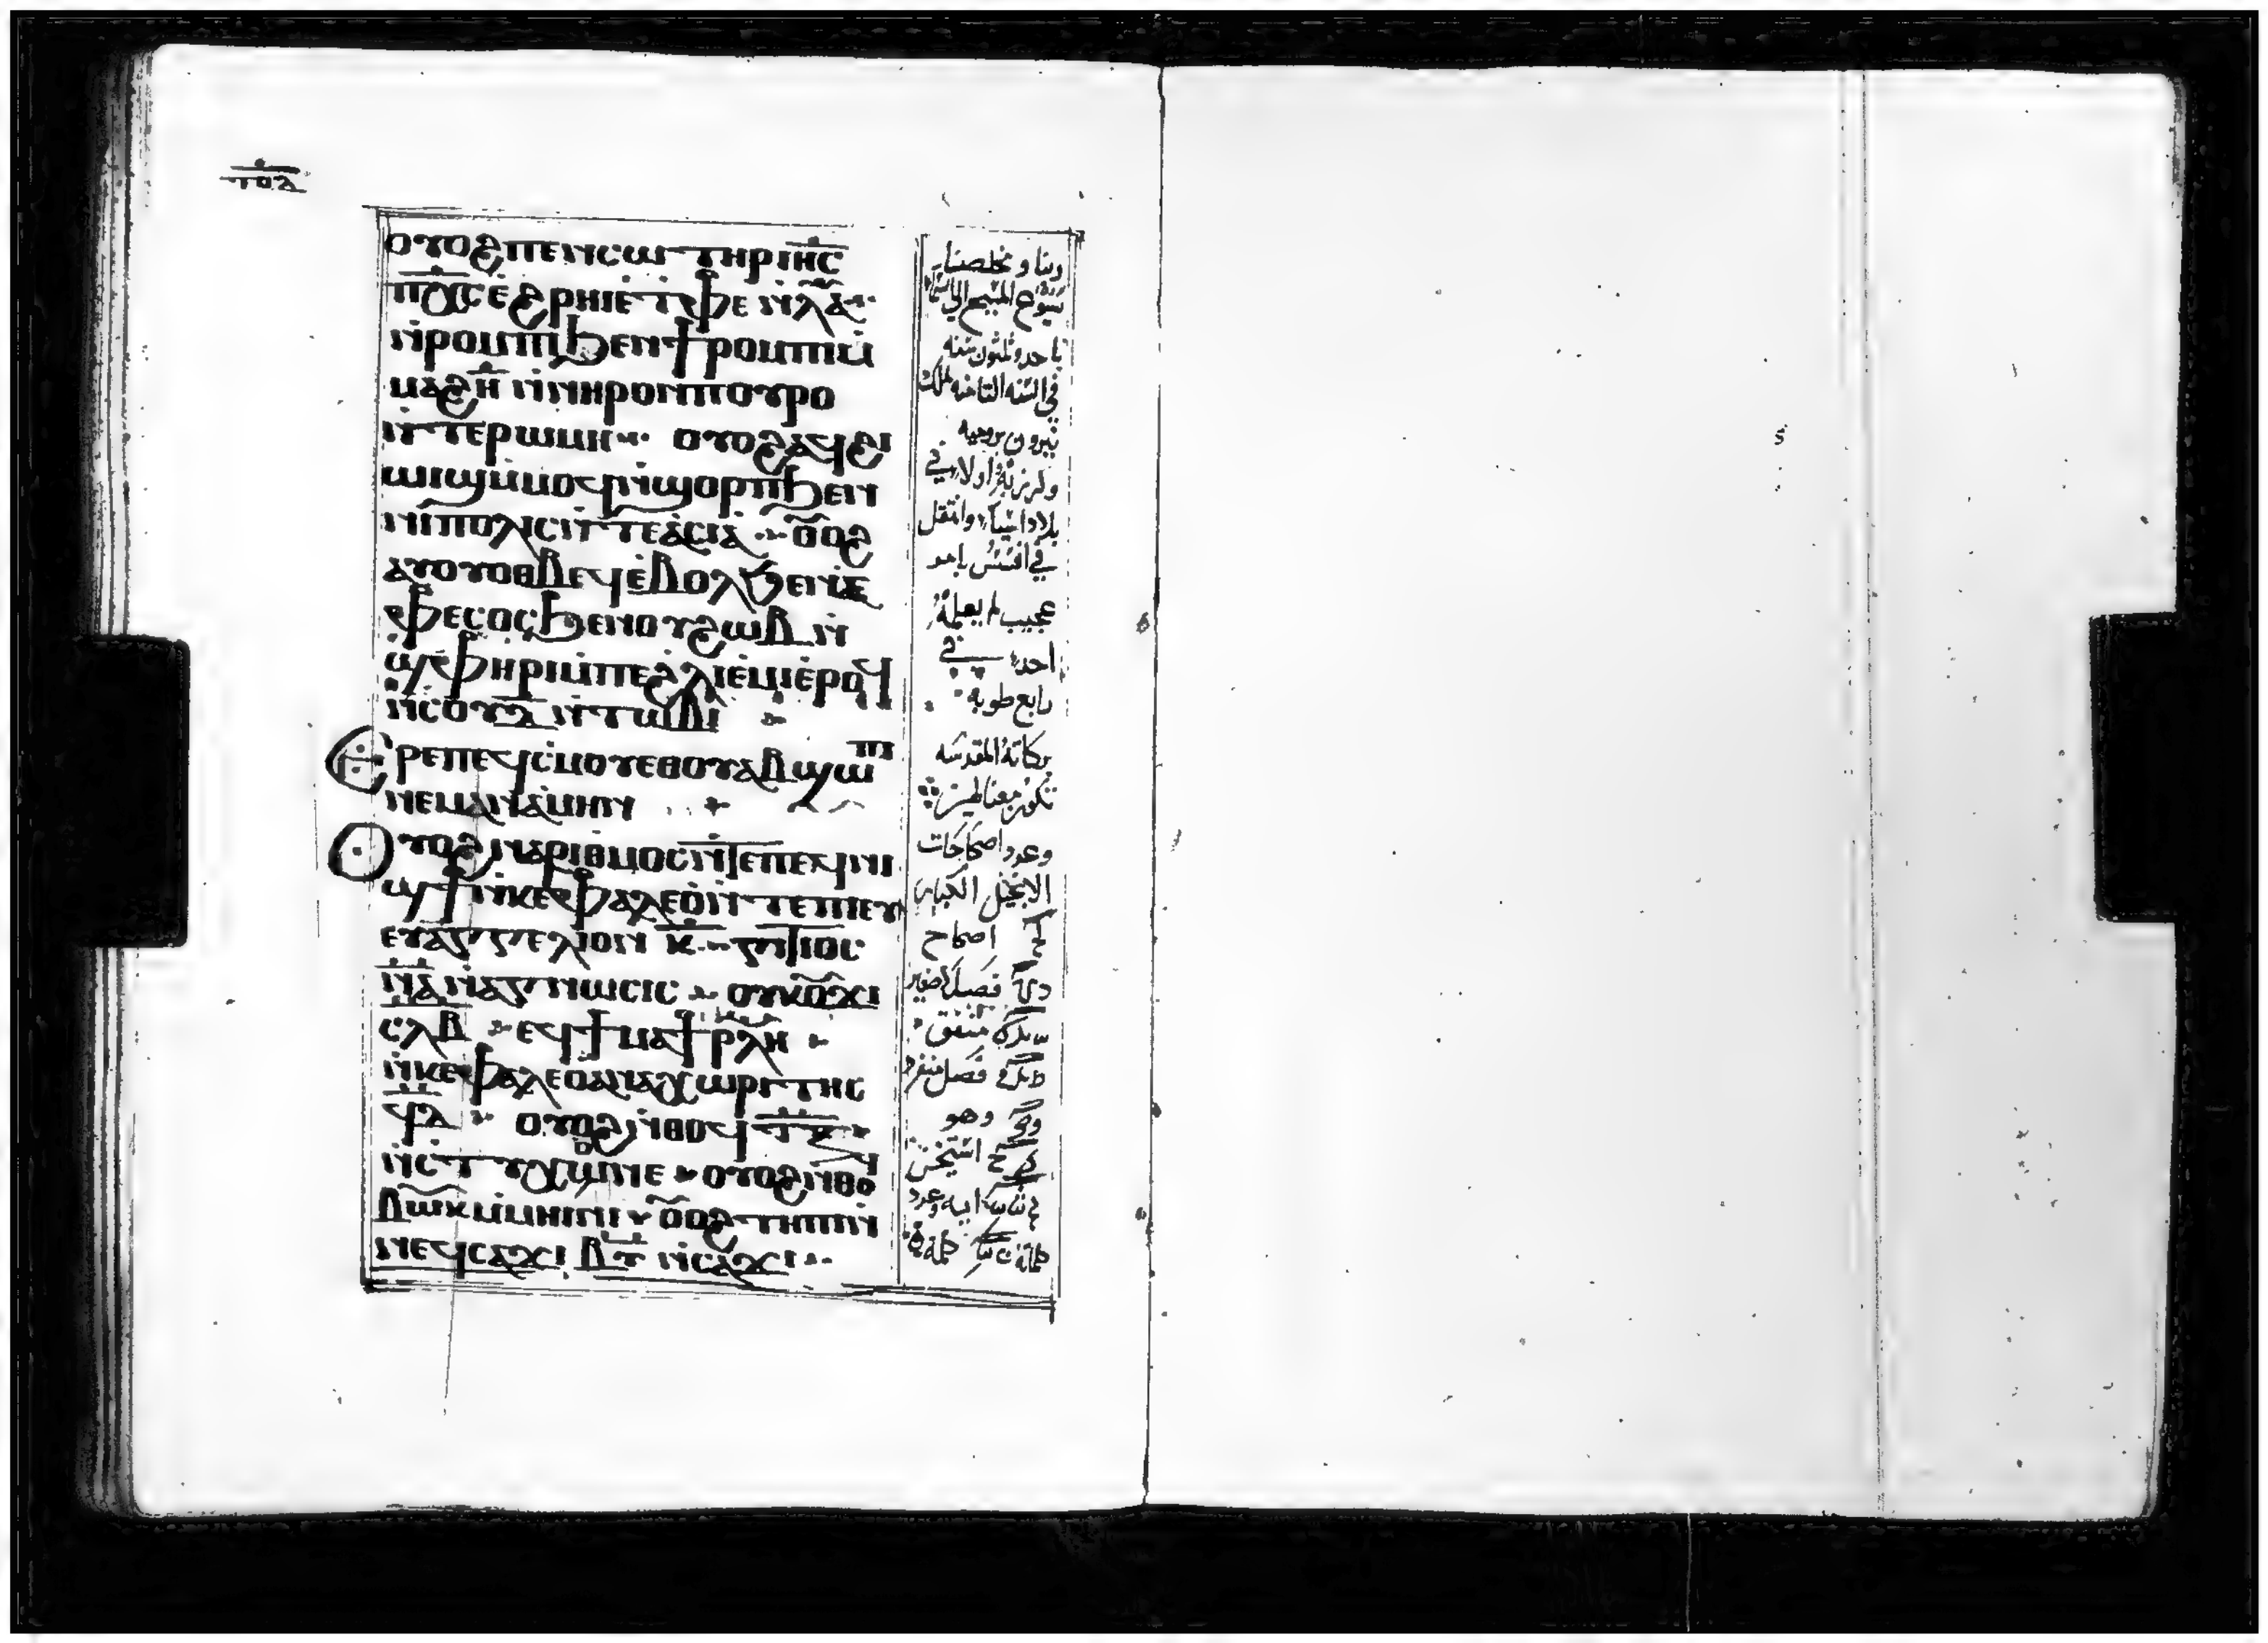 ⲧⲟⲗ
ⲟⲩⲟϩ ⲡⲉⲛⲥⲱⲧⲏⲣ ⲓⲏⲥ
ⲡⲭⲥ ⲉ̀ϩⲣⲏⲓ ⲉ̀ⲧⲫⲉ ⲛ̀ⲗⲁ
ⲛ̀ⲣⲟⲙⲡⲓ ϧⲉⲛ ϯⲣⲟⲙⲡⲓ ⲙ̀
ⲙⲁϩⲏ ⲛ̀ⲛⲏⲣⲟⲛ ⲡⲟⲩⲣⲟ
ⲛ̀ⲧⲉ ⲣⲱⲙⲏ ⲟⲩⲟϩ ⲁϥϩⲓ
ⲱⲓϣ ⲙ̀ⲙⲟϥ ⲛ̀ϣⲟⲣⲡ ϧⲉⲛ
ⲛⲓⲡⲟⲗⲓⲥ ⲛ̀ⲧⲉ ⲁ̀ⲥⲓⲁ̀ ⲟⲩⲟϩ
ⲁⲩⲟⲩⲟⲑⲃⲉϥ ⲉ̀ⲃⲟⲗ ϧⲉⲛ ⲉ̀
ⲫⲉⲥⲟⲥ ϧⲉⲛ ⲟⲩϩⲱⲃ ⲛ̀
ϣⲫⲏⲣⲓ ⲙ̀ⲡⲉ ϩⲗⲓ ⲉ̀ⲙⲓ ⲉ̀ⲣⲟϥ
ⲛ̀ⲥⲟⲩⲇ ⲛ̀ⲧⲱⲃⲓ
Ⲉⲣⲉ ⲡⲉϥⲥⲙⲟⲩ ⲉⲑⲟⲩⲁⲃ ϣⲱⲡⲓ
ⲛⲉⲙⲁⲛ ⲁ̀ⲙⲏⲛ
Ⲟⲩⲟϩ ⲛ̀ⲁⲣⲓⲑⲙⲟⲥ ⲛ̀ϯⲉⲡⲉϥⲛⲓ
ϣϯ ⲛ̀ⲕⲉⲫⲁⲗⲉⲟⲛ ⲛ̀ⲧⲉ ⲡⲓⲉⲩ
ⲉⲩⲁⲅⲅⲉⲗⲓⲟⲛ ⲕ
ⲛ̀ⲁ̀ⲛⲁⲅⲛⲱⲥⲓⲥ ⲟⲩⲕⲟⲩϫⲓ
ⲥⲗⲃ ⲉϥϯⲙⲁϯ ⲣⲗⲏ
ⲛ̀ⲕⲉⲫⲁⲗⲉⲟⲛ ⲁⲛⲁⲭⲱⲣⲓⲧⲏⲥ
ϥⲇ ⲟⲩⲟϩ ⲛ̀ⲑⲟϥ
ⲛ̀ⲥⲧⲩⲭⲟⲥ ⲟⲩⲟϩ ⲛ̀ⲑⲟϥ
ⲟⲩⲟϩ ⲧⲏⲡⲓ ⲛ̀
ⲛⲉϥⲥⲁϫⲓ ⲃⲧ ⲛ̀ⲥⲁϫⲓ
ربنا ومخلصنا
يسوع المسيح الى السماء
باحد وثلثون سنه
في السنه الثامنه لملك
نيرون بروميه
وكرز به اولا في
بلاد اسيا وانتقل
في افسس بامر
عجيب لم يعلمه
احد في
رابع طوبه
بركاته المقدسه
تكون معنا امين
وعدد اصحاحات
الانجيل الكبار
اصحاح
فصل صغير
متفق
فصل منفرد
وهو